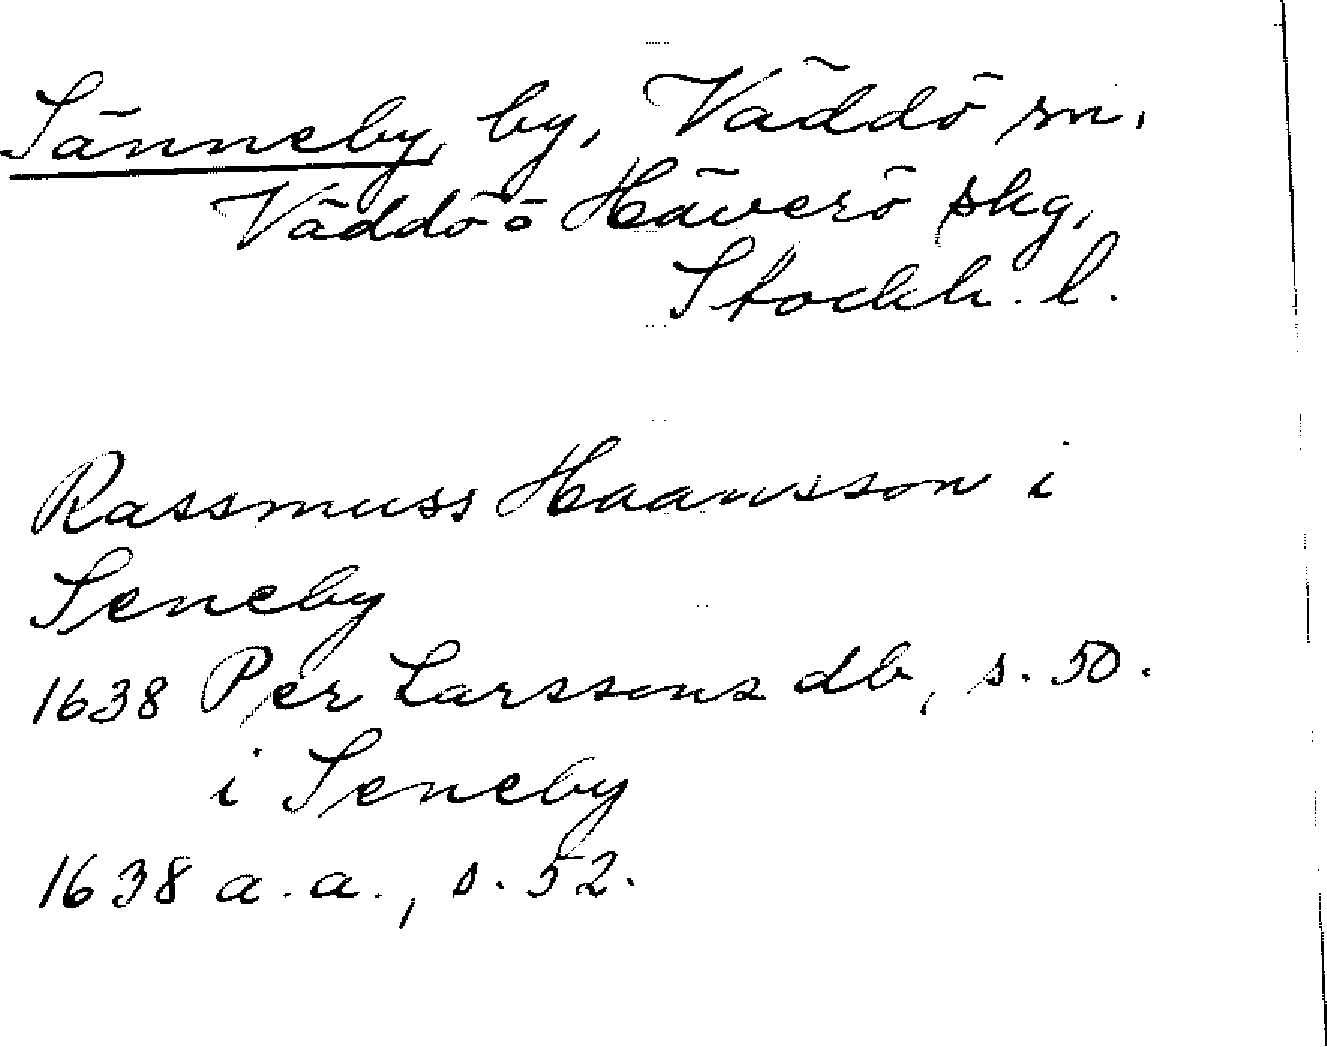 Sänneby, by, Väddö sn.
Väddö o Häverö skg,
Stockh. l.
Rassmuss Haansson i
Seneby
1638 Per Larssons db, s. 50.
i Seneby
1638 a. a., s. 52.